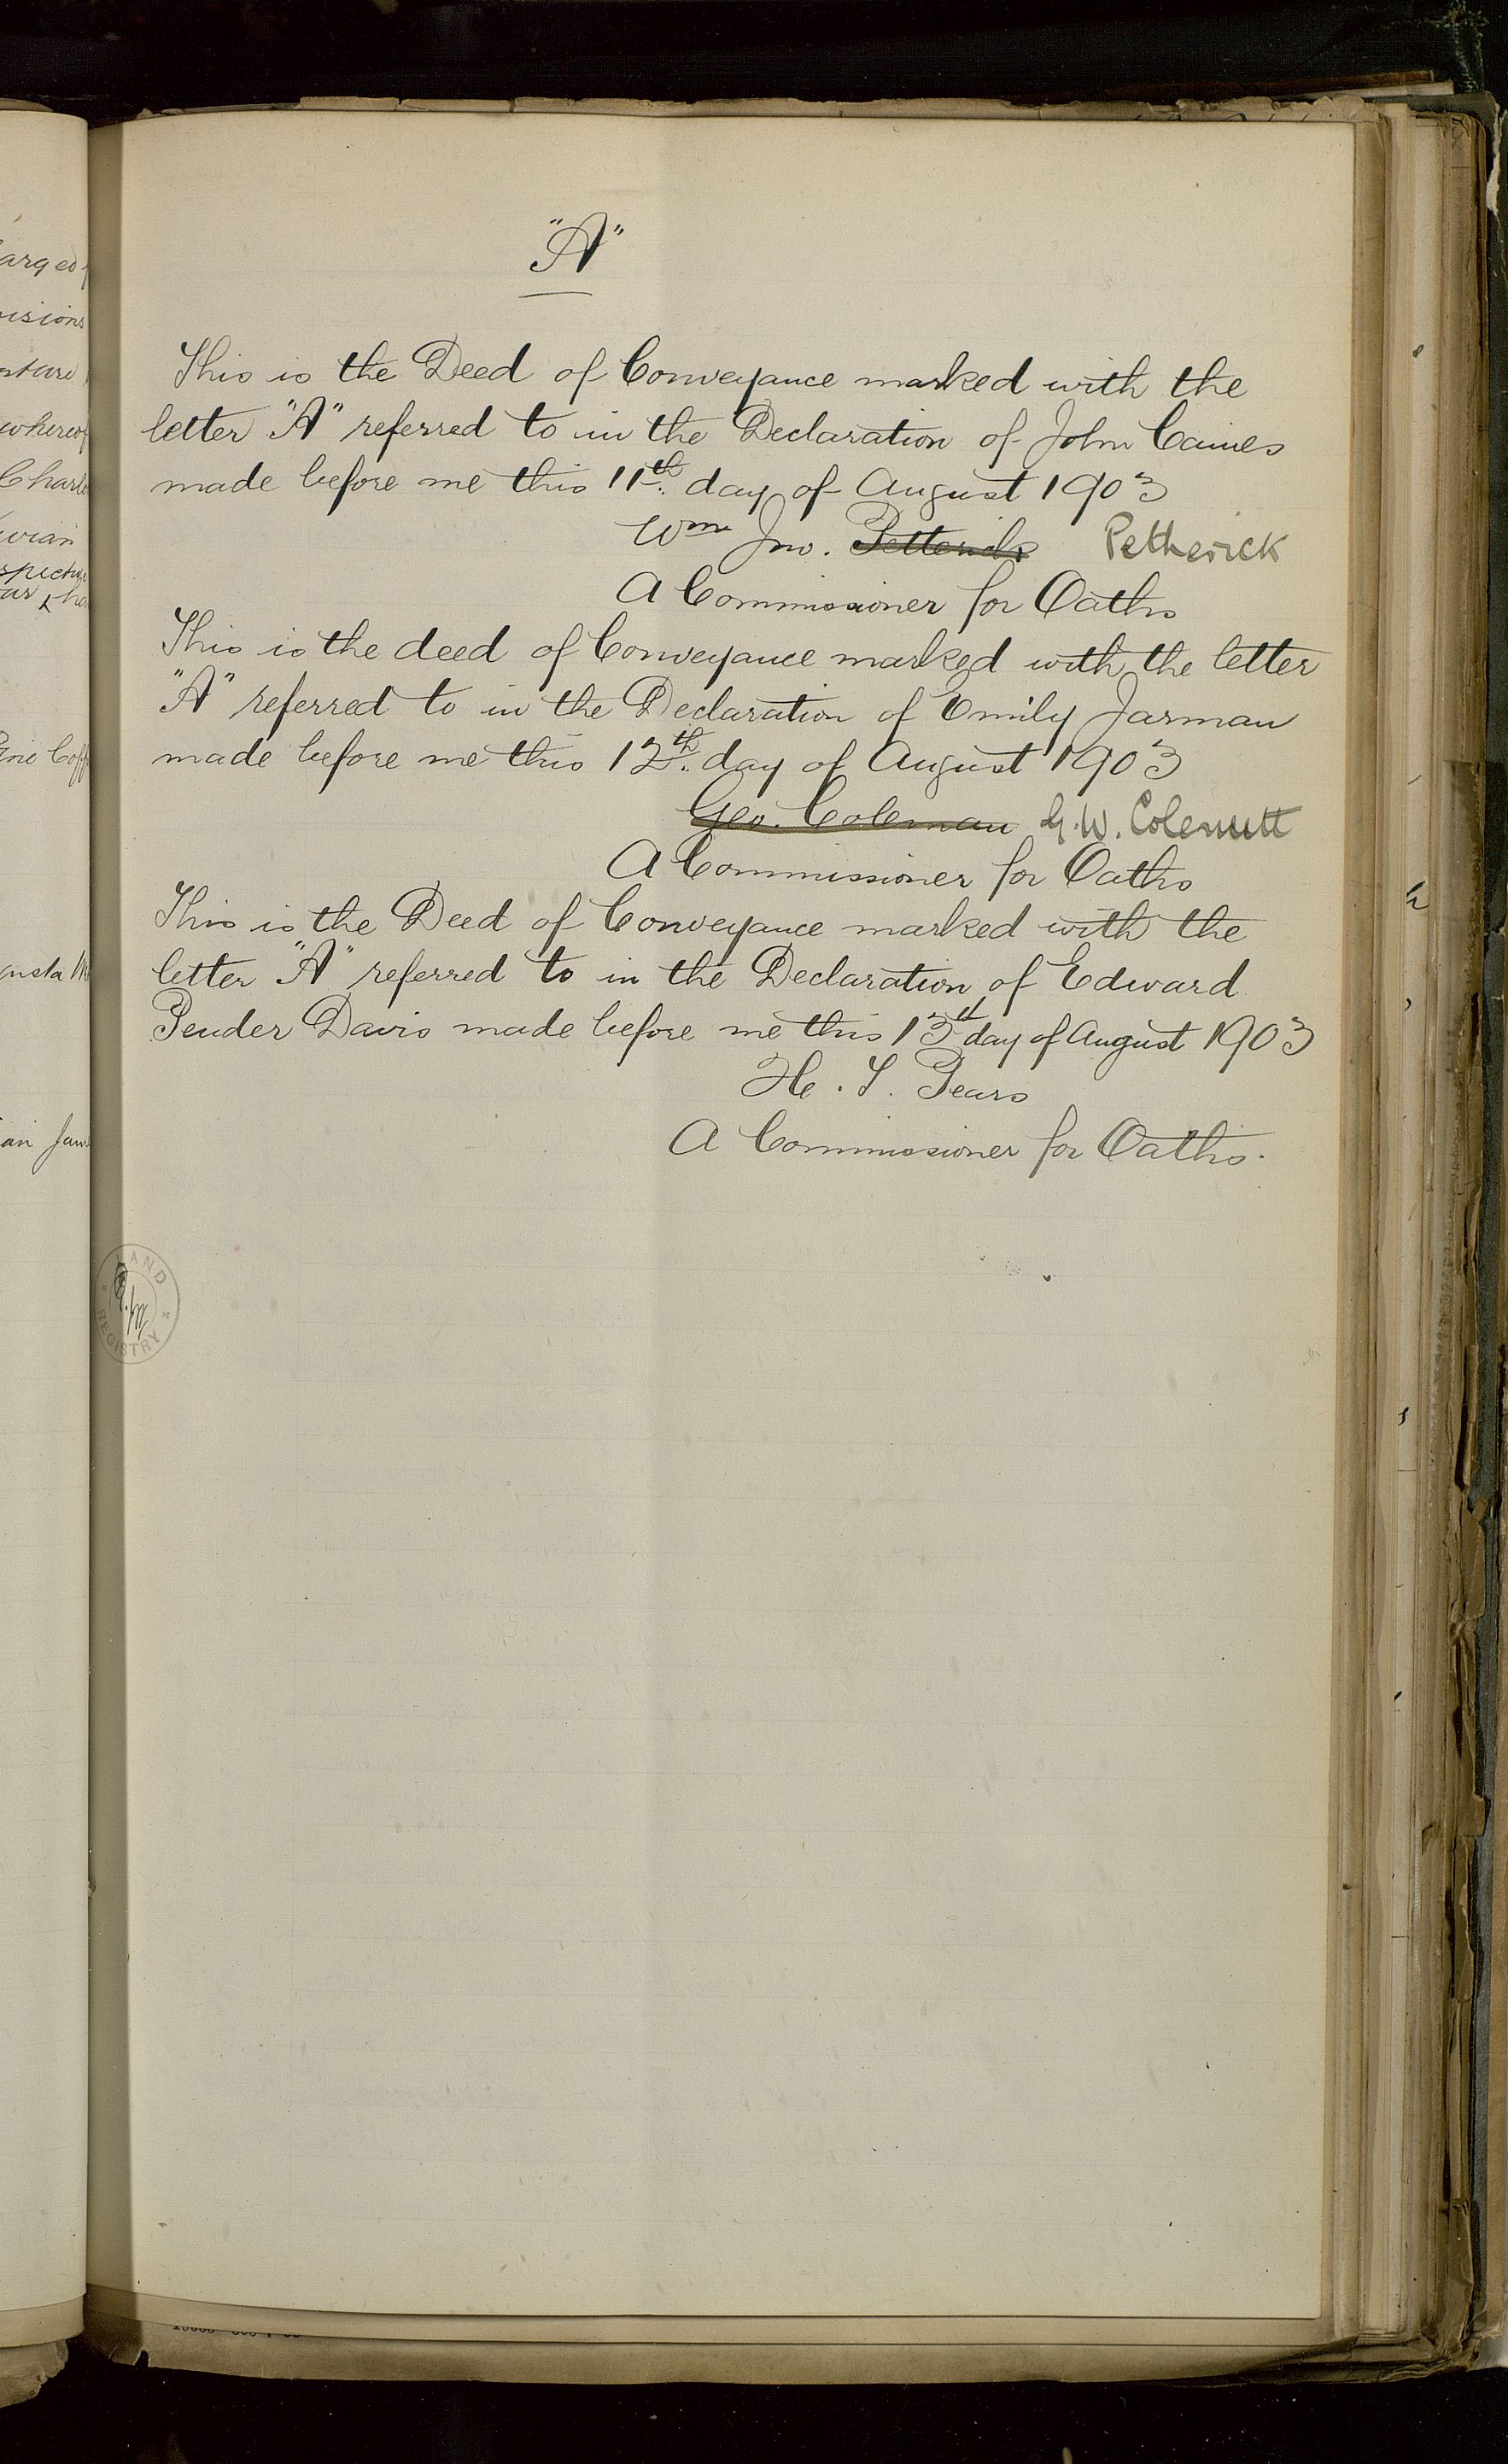 "A"
This is the Deed of Conveyance marked with the
letter "A" referred to in the Declaration of John Caines
made before me this 11th day of August 1903
Wm Jno. Petterick Petherick
A Commissioner for Oaths
This is the deed of Conveyance marked with the letter
"A" referred to in the Declaration of Emily Jarman
made before me this 12th day of August 1903
Geo. Coleman G. W. Colenutt
A Commissioner for Oaths
This is the Deed of Conveyance marked with the
letter "A" referred to in the Declaration of Edward
Pender Davis made before me this 13th day of August 1903
H. S. Pears
A Commissioner for Oaths.
LAND REGISTRY